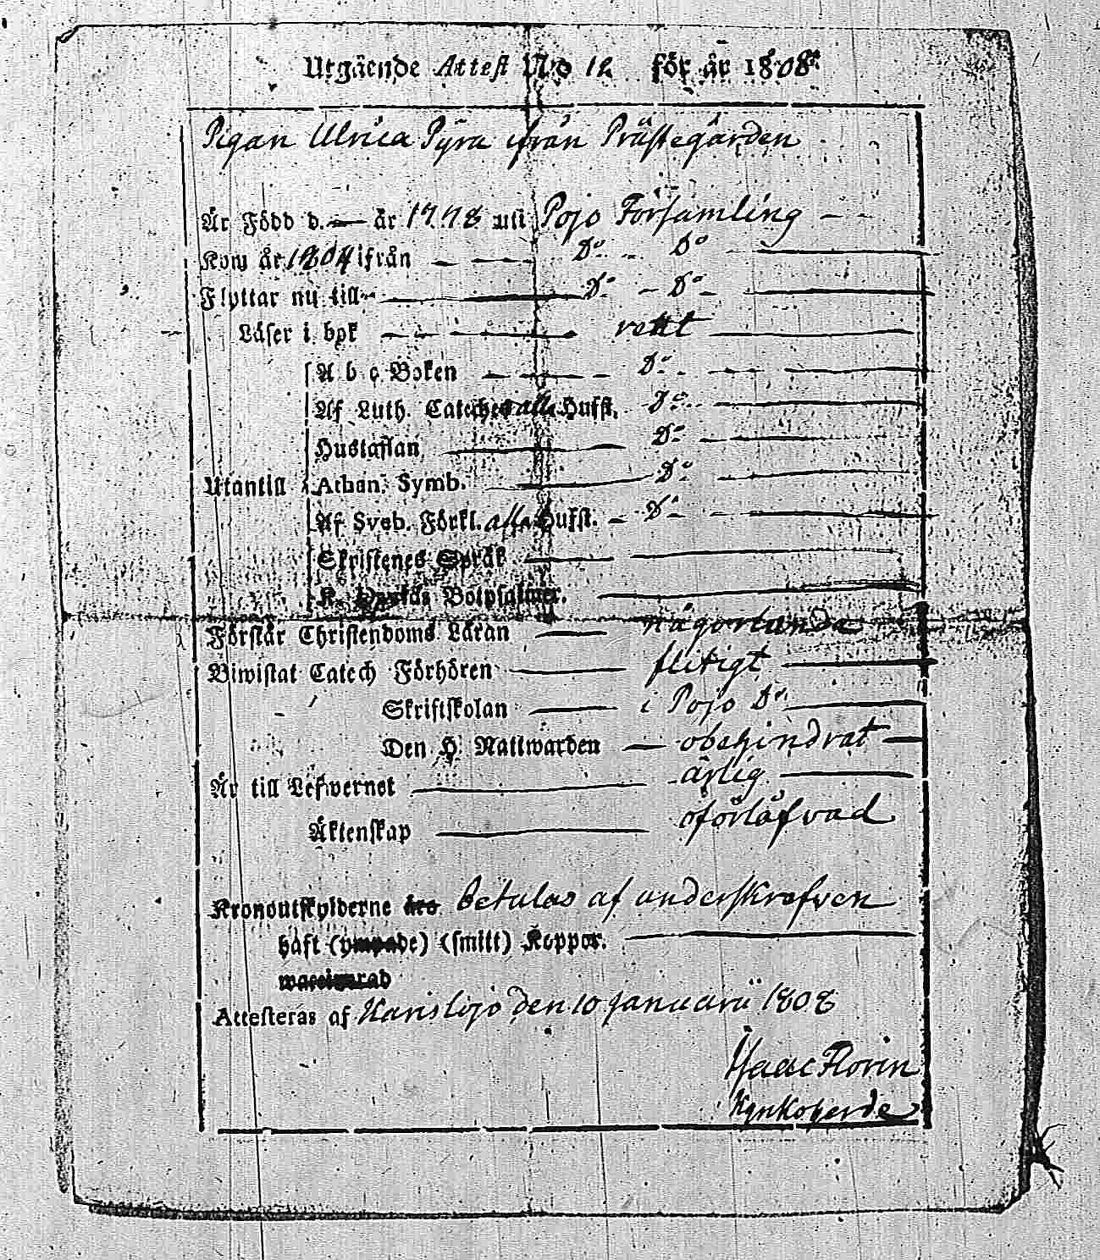 Utgående Attest No 12 för år 1808.
Pigan Ulrica Pyra ifrån Prästegården
Är Född d. — år 1778 uti Pojo Församling - -
Kom år 1804 ifrån — Do - Do —
Flyttar nu till — Do - Do —
Läser i bok — rätt —
A b c Boken — Do —
Af Luth. Cateches alla Hufst. Do —
Hustaflan, — Do —
Utantill Athan. Symb. — Do —
Af Sveb. Förkl. alla Hufst. — Do —
Skriftenes Språk —
K. Davids Botpsalmer. —
Förstår Christendoms Läran — någorlunda
Biwistat Catech Förhören — flitigt —
Skriftskolan — i Pojo Do —
Den H. Nattwarden — obehindrat —
Är till Lefwernet — ärlig —
Äktenskap — oförlåfvad
Kronoutskylderne äro betalas af underskrefven
haft (ympade) (smitt) Koppor. —
Attesteras af Karislojo den 10 Januarii 1808
Isaac Florin
Kyrkoherde